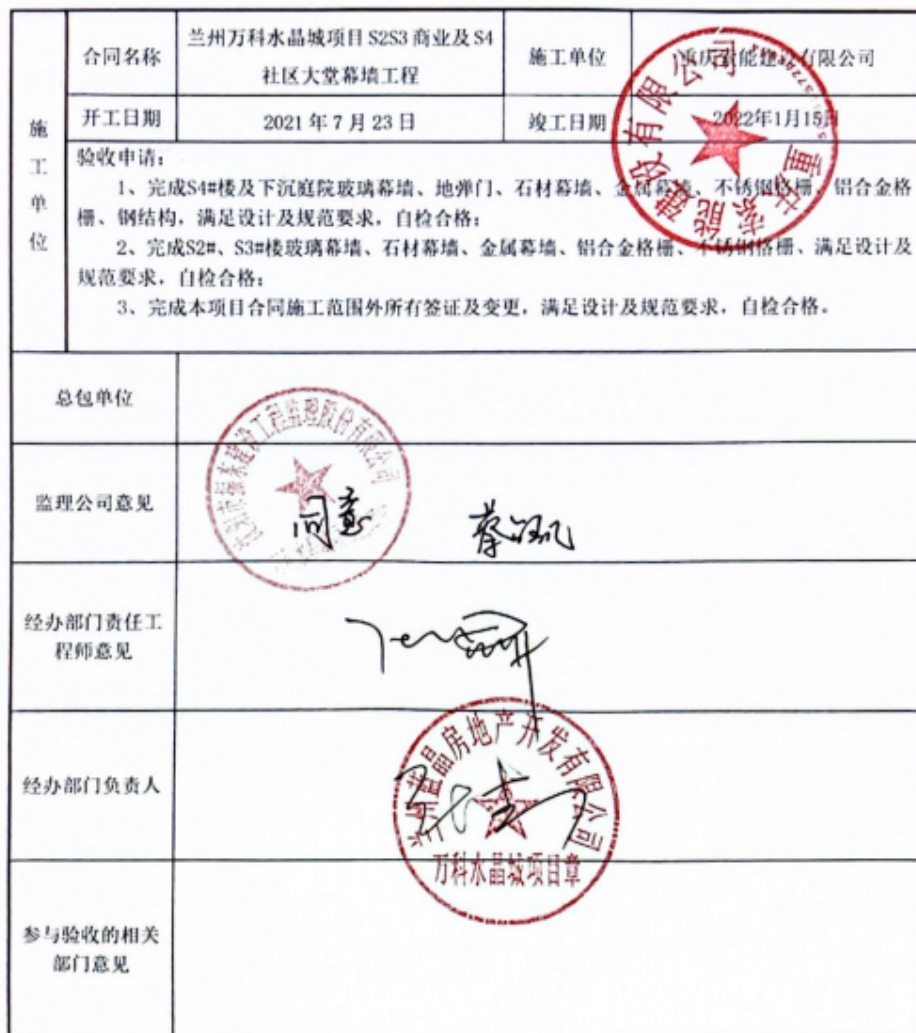 合同名称
兰州万科水晶城项目 S2S3 商业及 S4
社区大堂幕墙工程
施工单位
重庆索能建设有限公司
开工日期
2021 年 7 月 23 日
竣工日期
2022年1月15日
施工单位
验收申请：
1、完成S4#楼及下沉庭院玻璃幕墙、地弹门、石材幕墙、金属幕墙、不锈钢格栅、铝合金格
栅、钢结构，满足设计及规范要求，自检合格；
2、完成S2#、S3#楼玻璃幕墙、石材幕墙、金属幕墙、铝合金格栅、不锈钢格栅、满足设计及
规范要求，自检合格；
3、完成本项目合同施工范围外所有签证及变更，满足设计及规范要求，自检合格。
重庆索能建设有限公司
总包单位
监理公司意见
建设工程监理股份有限公司
同意
经办部门责任工
程师意见
经办部门负责人
房地产开发有限公司
万科水晶城项目章
参与验收的相关
部门意见